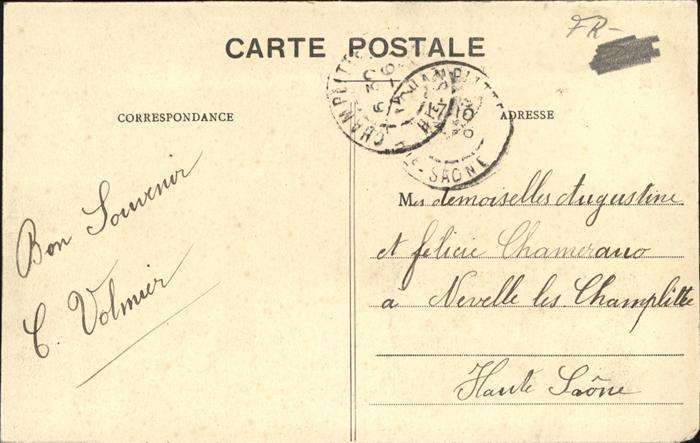 FR-
CARTE POSTALE
CORRESPONDANCE
ADRESSE
CHAMPLITTE
CHAMPLITTE
HTE-SAÔNE
Bon Souvenir
C. Volmier
Mesdemoiselles Augustine
et félicie Chamerano
a Nevelle les Champlitte
Haute Saône